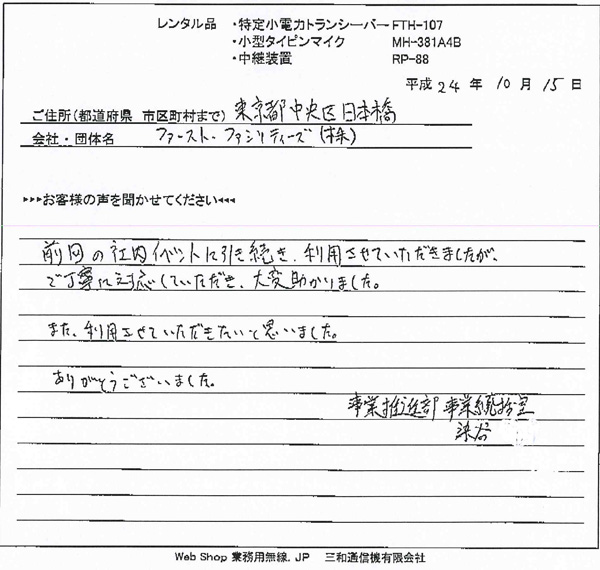 レンタル品 ・特定小電力トランシーバー FTH-107
・小型タイピンマイク MH-381A4B
・中継装置 RP-88
平成 24 年 10 月 15 日
ご住所(都道府県 市区町村まで) 東京都中央区日本橋
会社・団体名 ファースト・ファシリティーズ(株)
▸▸▸お客様の声を聞かせてください◂◂◂
前回の社内イベントに引き続き、利用させていただきましたが、
ご丁寧に対応していただき、大変助かりました。
また、利用させていただきたいと思いました。
ありがとうございました。
事業推進部 事業統括室
染谷
Web Shop 業務用無線.JP 三和通信機有限会社